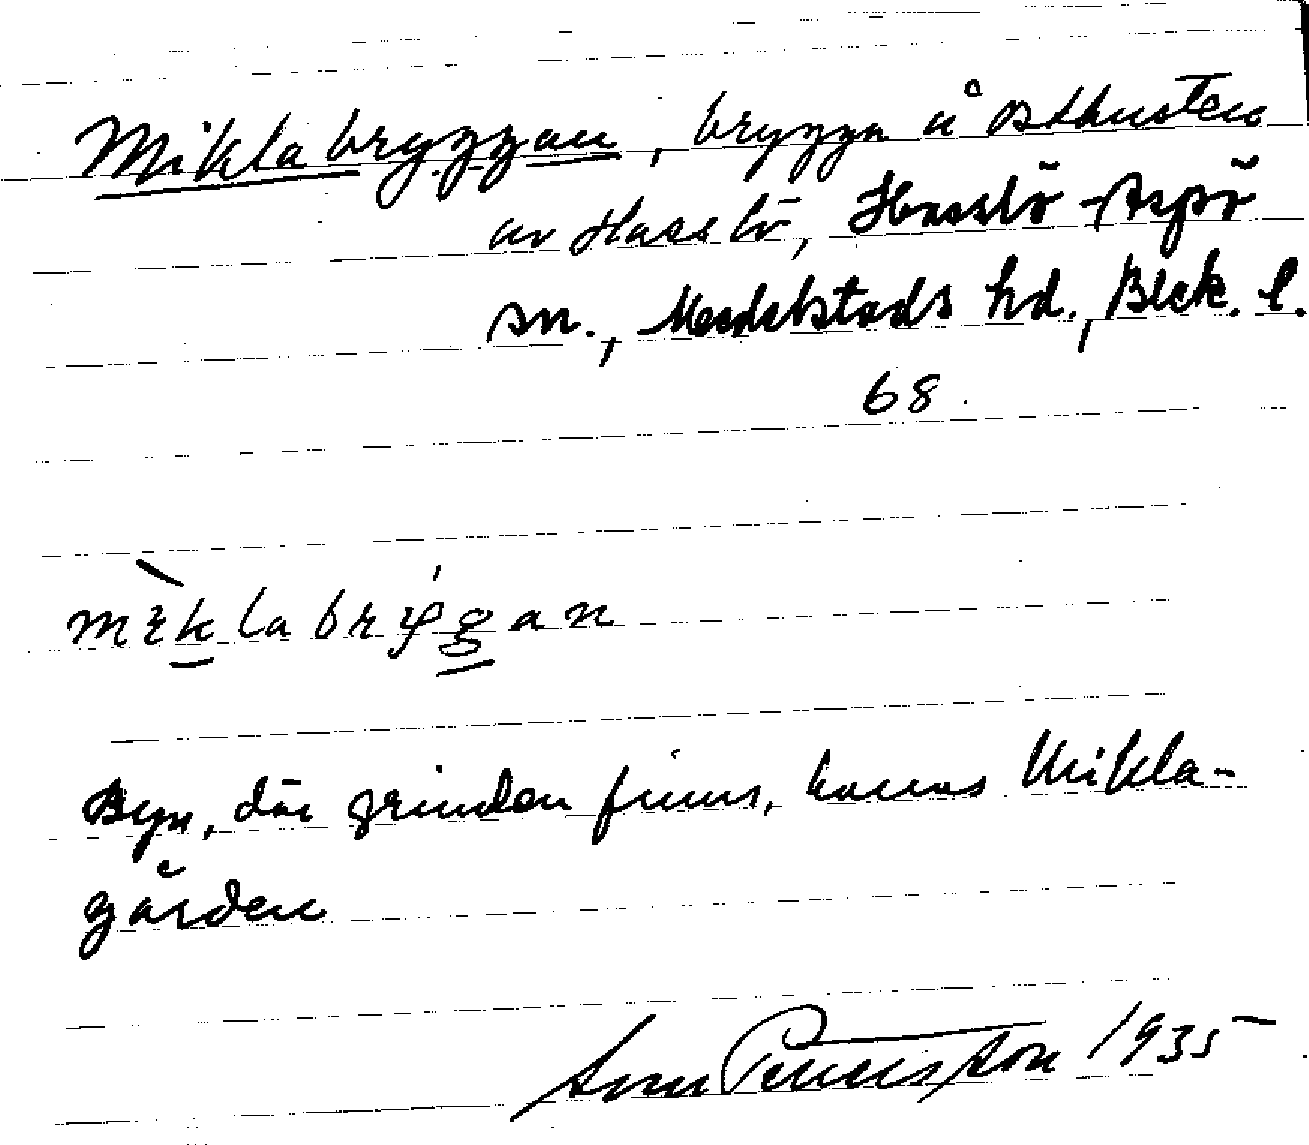 Miklabryggan, brygga å östkusten
av Hasslö, Hasslö-Aspö
sn., Medelstads hd., Blek. l.
68.
mìklabrýgan
Byn, där grinden finns, kallas Mikla-
gården
1935